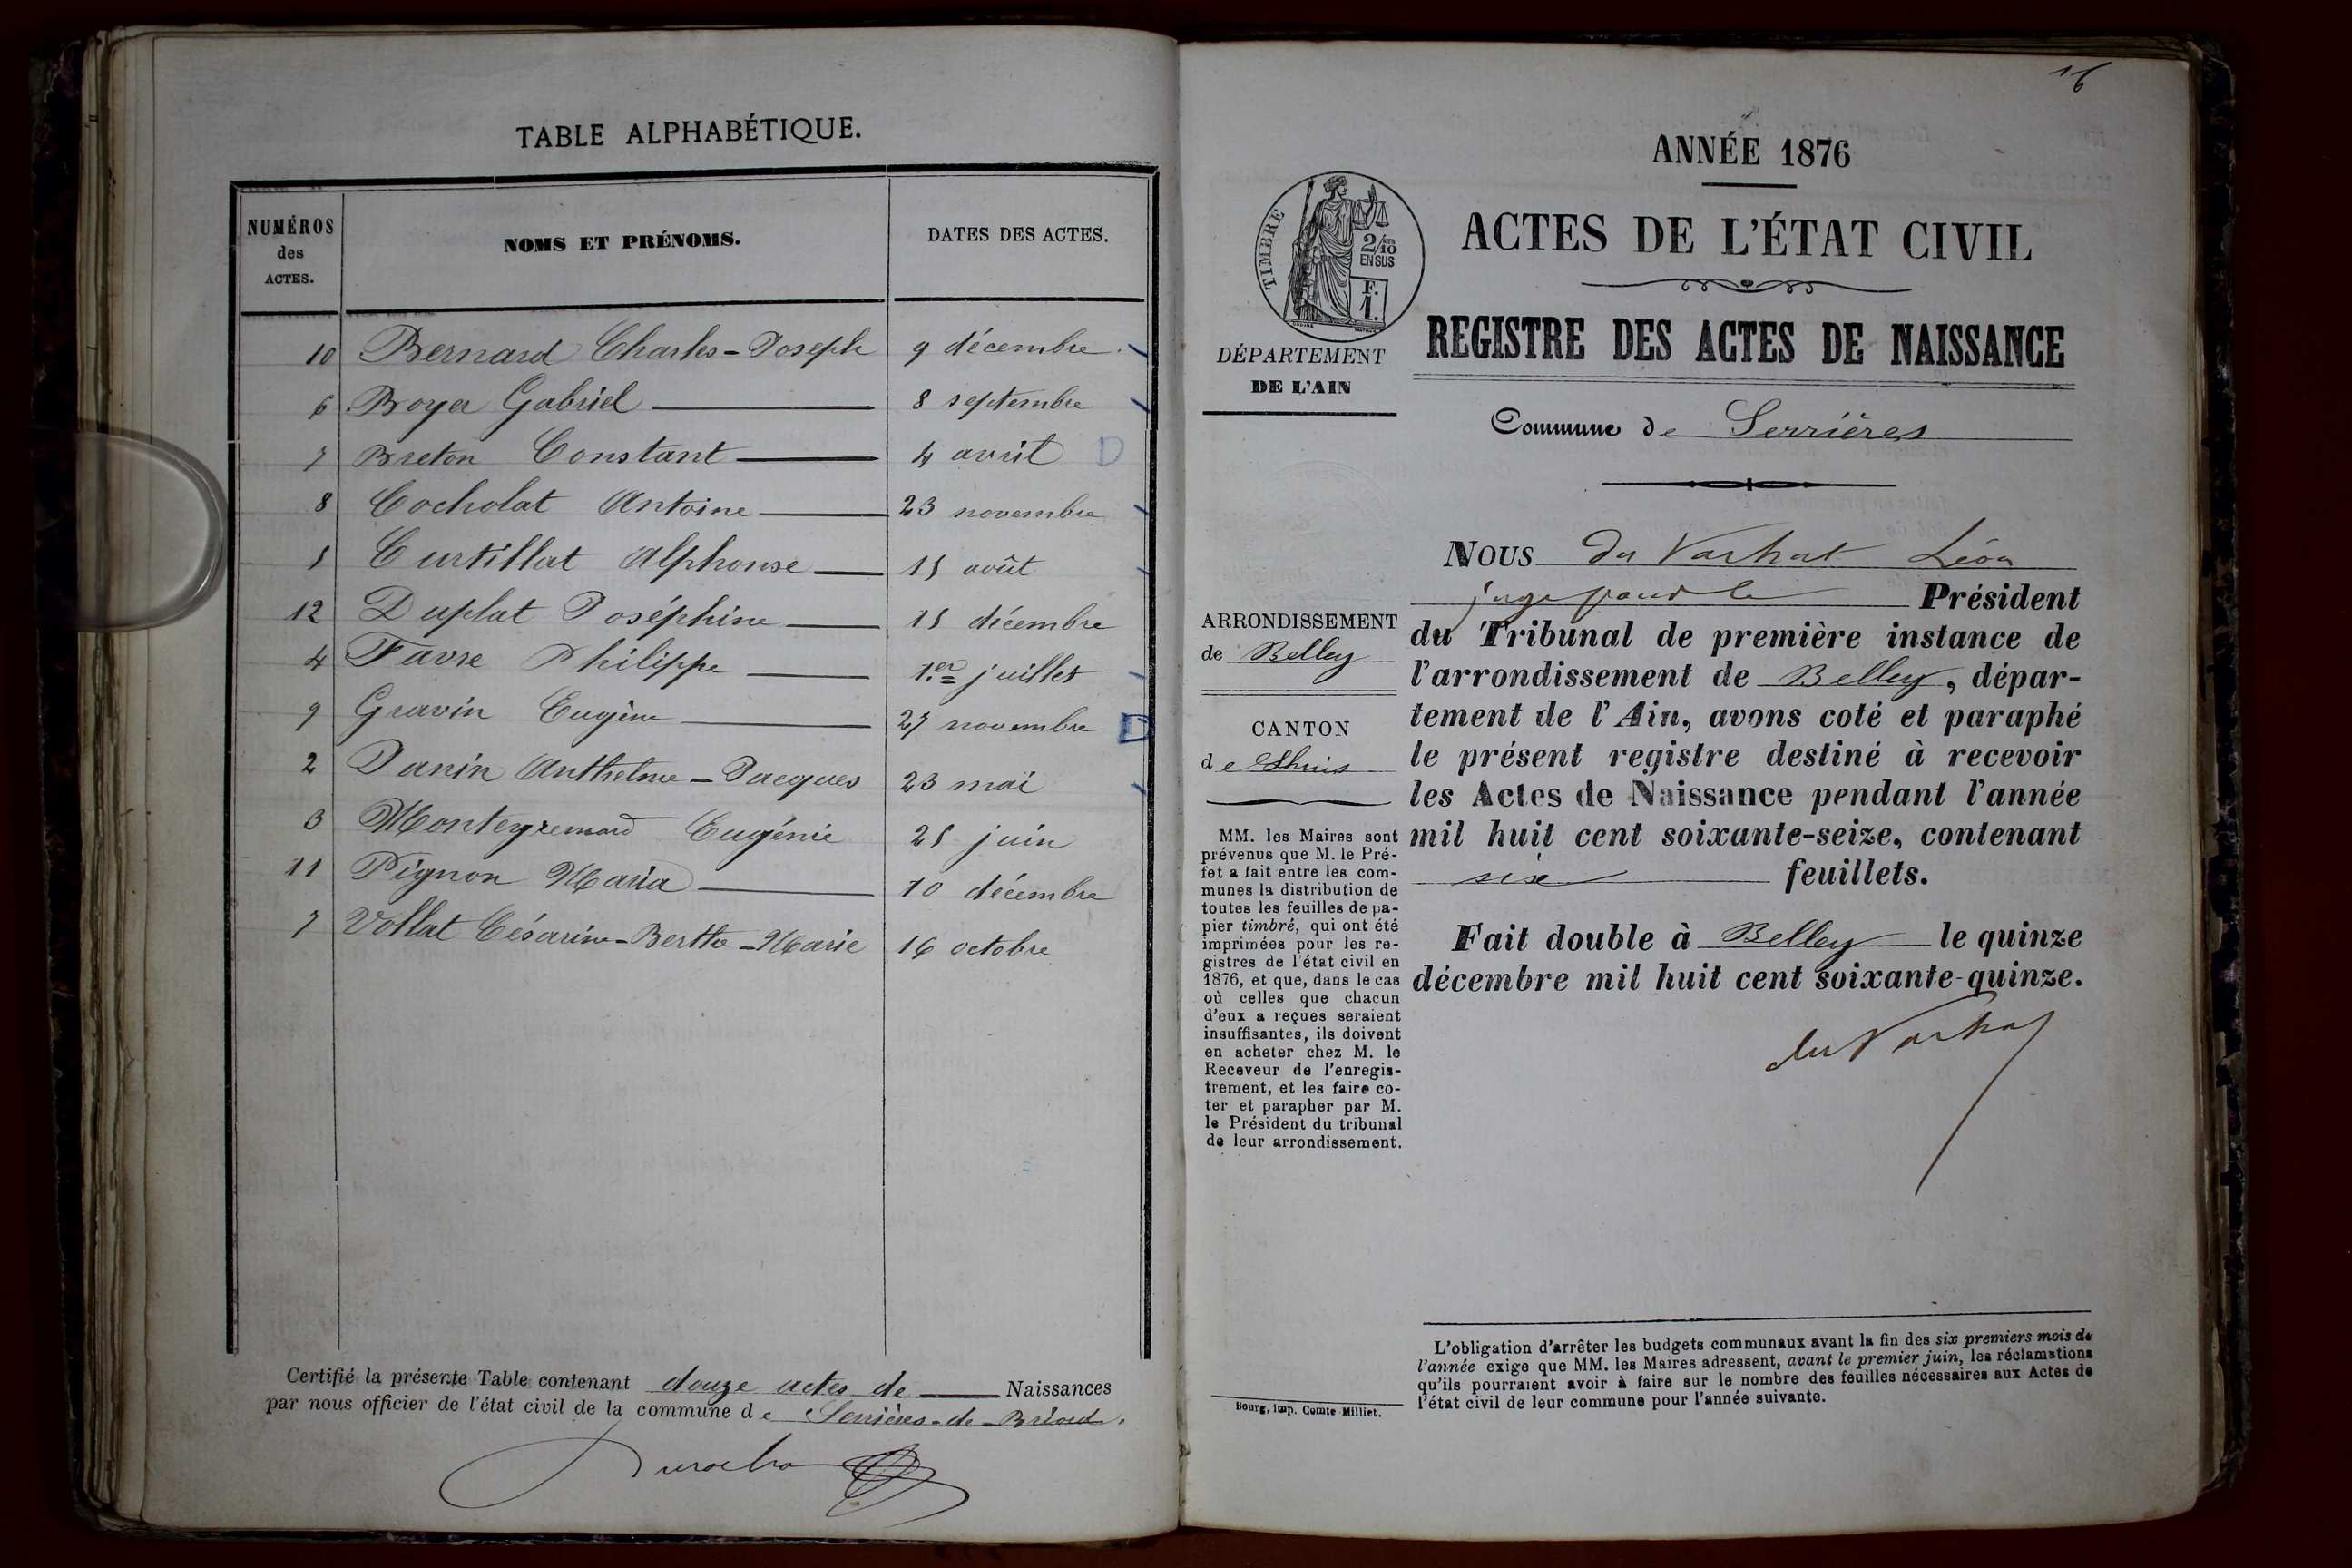 TABLE ALPHABÉTIQUE.
NUMÉROS des ACTES.
NOMS ET PRÉNOMS.
DATES DES ACTES.
10 Bernard Charles-Joseph 9 décembre
6 Boyer Gabriel 8 septembre
1 Breton Constant 4 avril D
8 Cocholat Antoine 23 novembre
5 Curtillat Alphonse 15 août
12 Duplat Joséphine 15 décembre
4 Favre Philippe 1er juillet
9 Gravin Eugène 25 novembre D
2 Janin Anthelme-Jacques 23 mai
3 Monteyremard Eugénie 25 juin
11 Pignon Maria 10 décembre
7 Vollat Césarine-Berthe-Marie 16 octobre
Certifié la présente Table contenant douze actes de Naissances
par nous officier de l'état civil de la commune de Serrières-de-Briord.
16
ANNÉE 1876
TIMBRE
2/10
EN SUS
F.
1.
ACTES DE L'ÉTAT CIVIL
REGISTRE DES ACTES DE NAISSANCE
DÉPARTEMENT
DE L'AIN
Commune de Serrières
ARRONDISSEMENT
de Belley
CANTON
de Lhuis
MM. les Maires sont
prévenus que M. le Pré-
fet a fait entre les com-
munes la distribution de
toutes les feuilles de pa-
pier timbré, qui ont été
imprimées pour les re-
gistres de l'état civil en
1876, et que, dans le cas
où celles que chacun
d'eux a reçues seraient
insuffisantes, ils doivent
en acheter chez M. le
Receveur de l'enregis-
trement, et les faire co-
ter et parapher par M.
le Président du tribunal
de leur arrondissement.
Nous du Vachat Léon
juge pour le Président
du Tribunal de première instance de
l'arrondissement de Belley, dépar-
tement de l'Ain, avons coté et paraphé
le présent registre destiné à recevoir
les Actes de Naissance pendant l'année
mil huit cent soixante-seize, contenant
six feuillets.
Fait double à Belley le quinze
décembre mil huit cent soixante-quinze.
du Vachat
L'obligation d'arrêter les budgets communaux avant la fin des six premiers mois de
l'année exige que MM. les Maires adressent, avant le premier juin, les réclamations
qu'ils pourraient avoir à faire sur le nombre des feuilles nécessaires aux Actes de
l'état civil de leur commune pour l'année suivante.
Bourg, imp. Comte-Milliet.